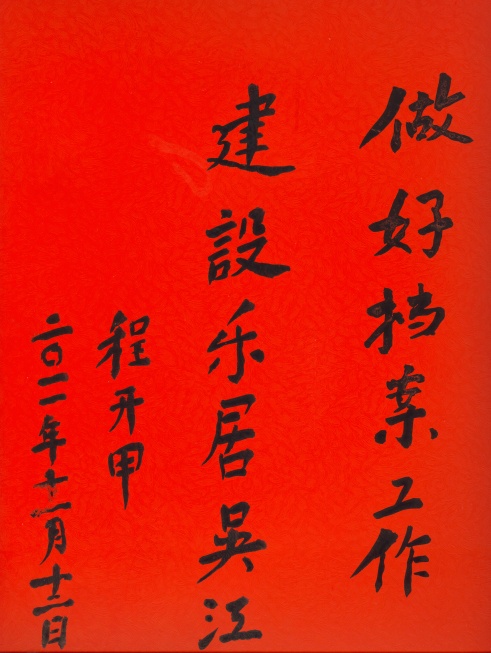 做好档案工作
建設乐居吴江
程开甲
二〇一一年十一月十二日